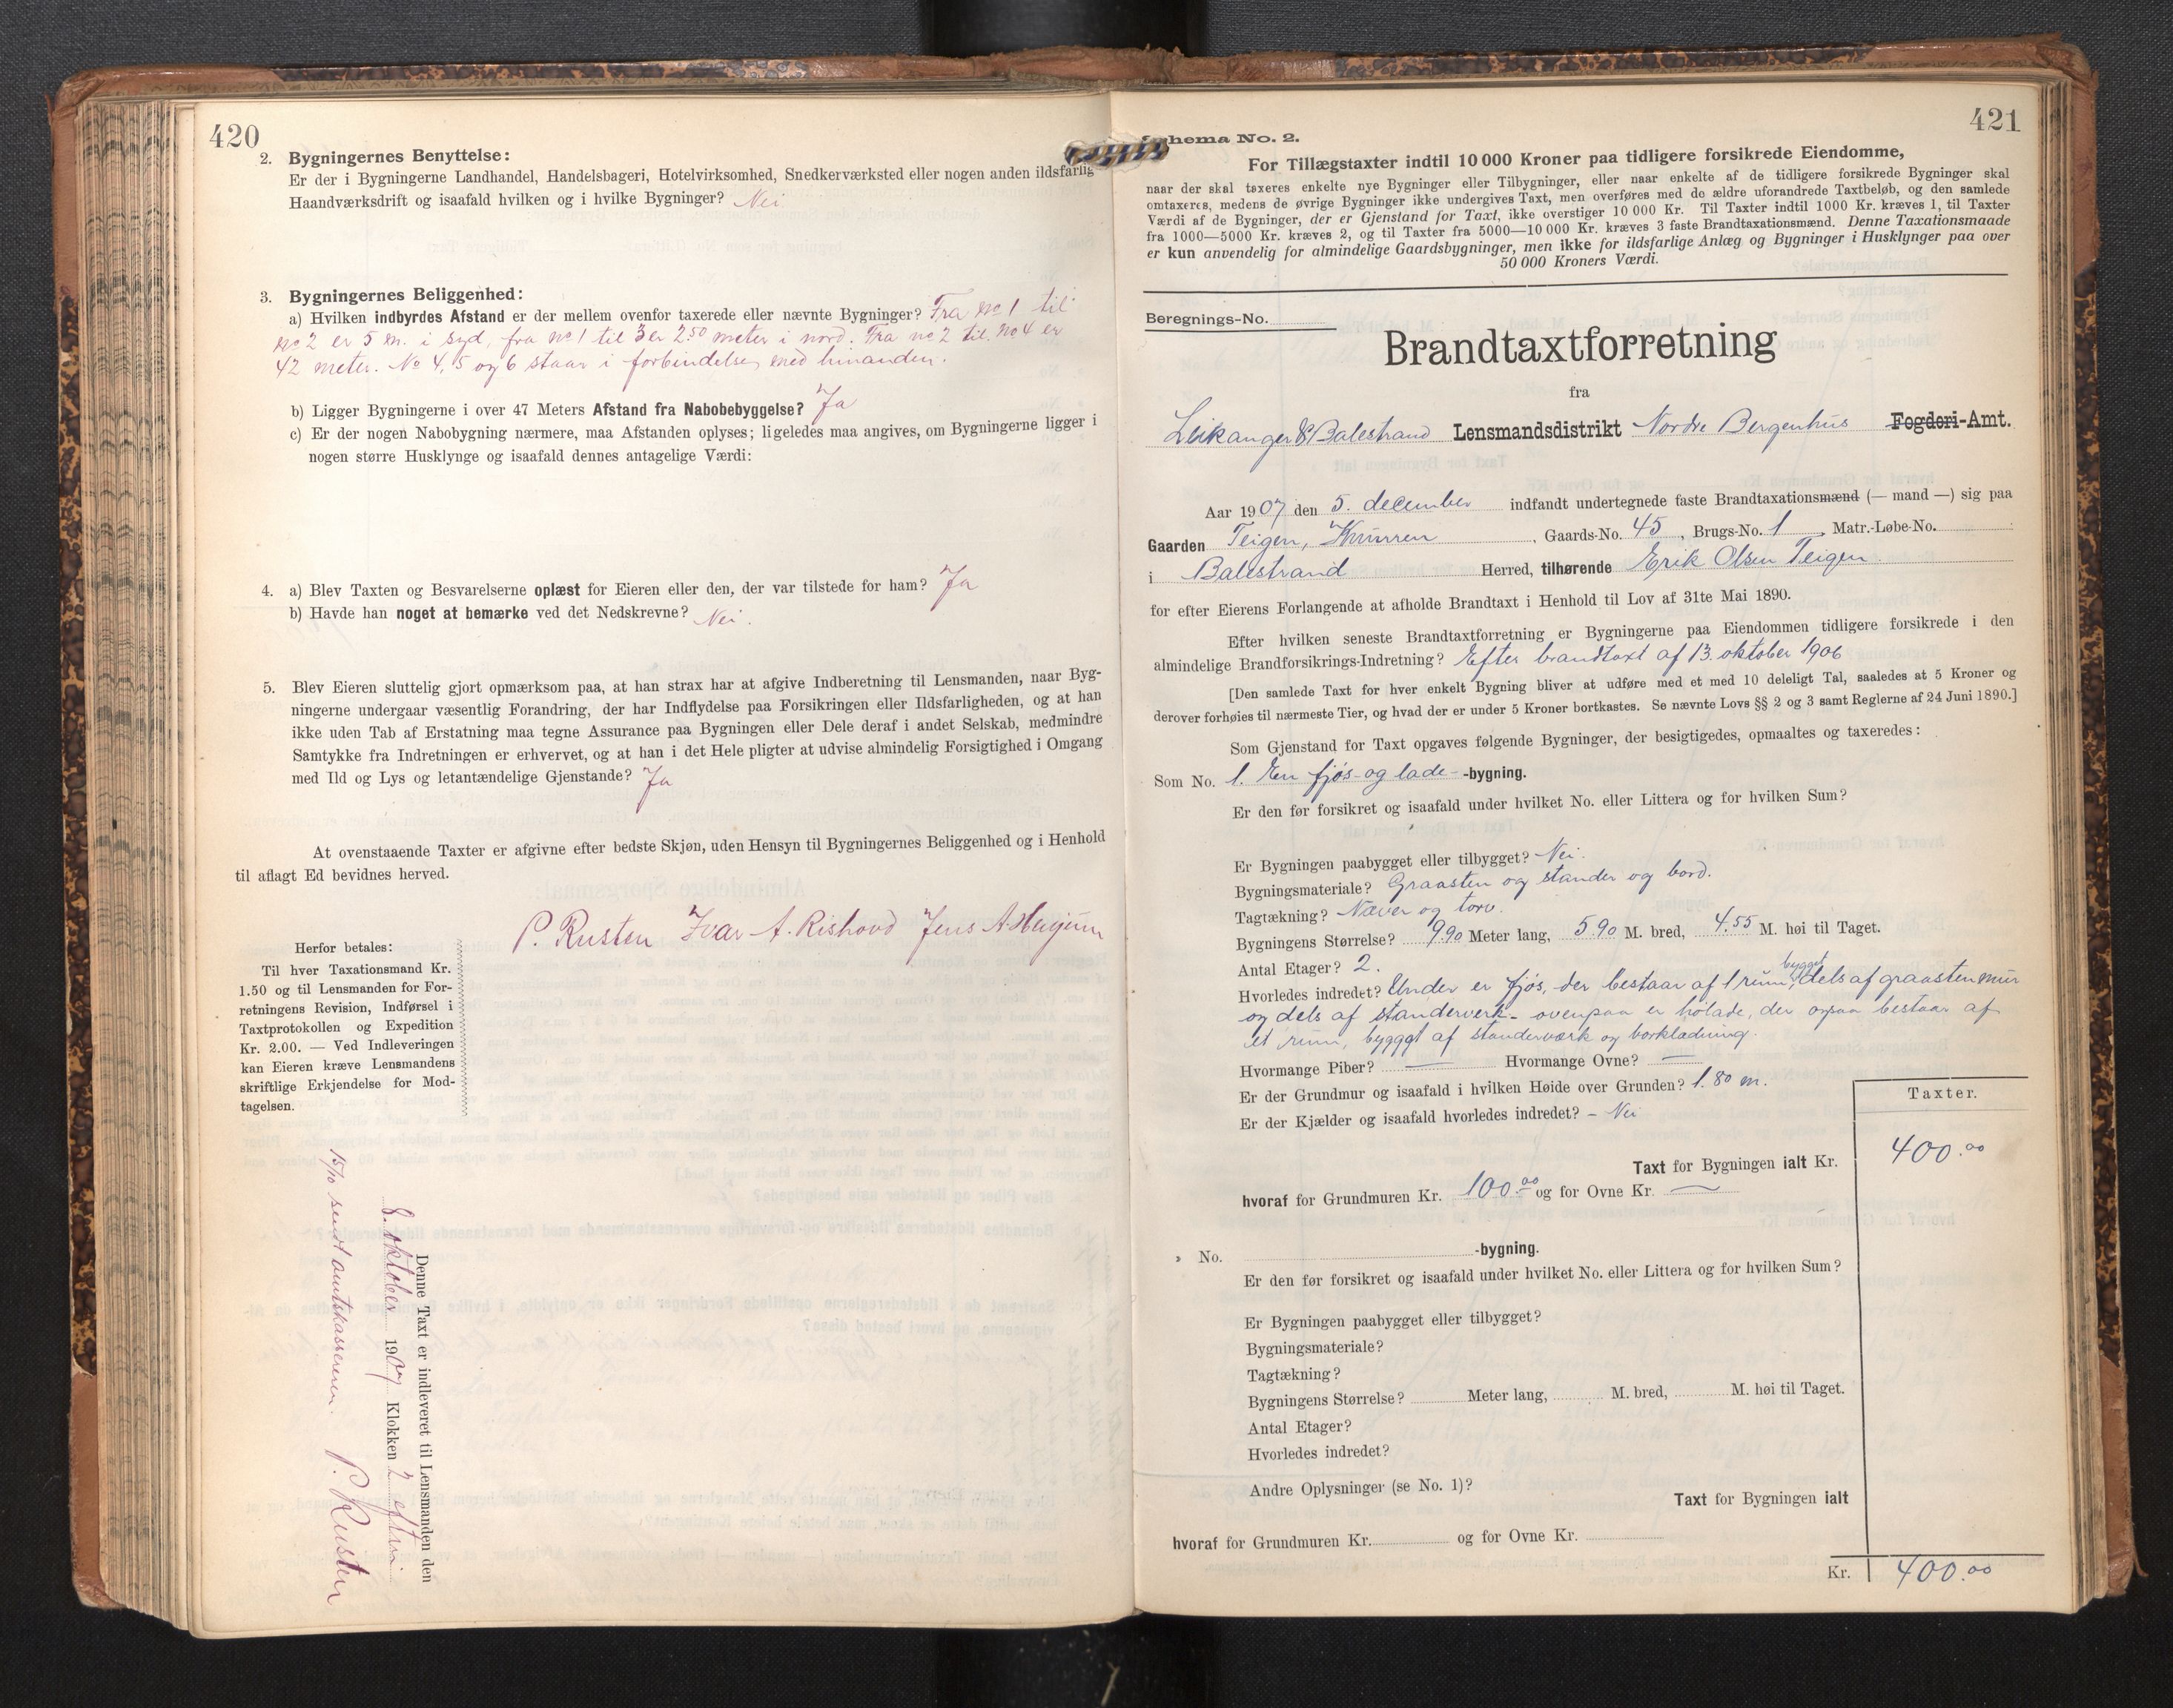 420
2. Bygningernes Benyttelse:
Er der i Bygningerne Landhandel, Handelsbageri, Hotelvirksomhed, Snedkerværksted eller nogen anden ildsfarlig
Haandværksdrift og isaafald hvilken og i hvilke Bygninger? Nei
3. Bygningernes Beliggenhed:
a) Hvilken indbyrdes Afstand er der mellem ovenfor taxerede eller nævnte Bygninger? Fra no 1 til
no 2 er 5 m. i syd, fra no 1 til 3 er 2.50 meter i nord. Fra no 2 til no 4 er
42 meter. No 4, 5 og 6 staar i forbindelse med hinanden.
b) Ligger Bygningerne i over 47 Meters Afstand fra Nabobebyggelse? Ja
c) Er der nogen Nabobygning nærmere, maa Afstanden oplyses; ligeledes maa angives, om Bygningerne ligger i
nogen større Husklynge og isaafald dennes antagelige Værdi:
4. a) Blev Taxten og Besvarelserne oplæst for Eieren eller den, der var tilstede for ham? Ja
b) Havde han noget at bemærke ved det Nedskrevne? Nei.
5. Blev Eieren sluttelig gjort opmærksom paa, at han strax har at afgive Indberetning til Lensmanden, naar Byg-
ningerne undergaar væsentlig Forandring, der har Indflydelse paa Forsikringen eller Ildsfarligheden, og at han
ikke uden Tab af Erstatning maa tegne Assurance paa Bygningen eller Dele deraf i andet Selskab, medmindre
Samtykke fra Indretningen er erhvervet, og at han i det Hele pligter at udvise almindelig Forsigtighed i Omgang
med Ild og Lys og letantændelige Gjenstande? Ja
At ovenstaaende Taxter er afgivne efter bedste Skjøn, uden Hensyn til Bygningernes Beliggenhed og i Henhold
til aflagt Ed bevidnes herved.
P. Rusten Ivar A. Rishovd Jens A.
Herfor betales:
Til hver Taxationsmand Kr.
1.50 og til Lensmanden for For-
retningens Revision, Indførsel i
Taxtprotokollen og Expedition
Kr. 2.00. — Ved Indleveringen
kan Eieren kræve Lensmandens
skriftlige Erkjendelse for Mod-
tagelsen.
Denne Taxt er indleveret til Lensmanden den
8. oktober 1907 Klokken 2 eftm
15/10 sendt amtskassereren. P. Rusten
421
Schema No. 2.
For Tillægstaxter indtil 10 000 Kroner paa tidligere forsikrede Eiendomme,
naar der skal taxeres enkelte nye Bygninger eller Tilbygninger, eller naar enkelte af de tidligere forsikrede Bygninger skal
omtaxeres, medens de øvrige Bygninger ikke undergives Taxt, men overføres med de ældre uforandrede Taxtbeløb, og den samlede
Værdi af de Bygninger, der er Gjenstand for Taxt, ikke overstiger 10 000 Kr. Til Taxter indtil 1000 Kr. kræves 1, til Taxter
fra 1000—5000 Kr. kræves 2, og til Taxter fra 5000—10 000 Kr. kræves 3 faste Brandtaxationsmænd. Denne Taxationsmaade
er kun anvendelig for almindelige Gaardsbygninger, men ikke for ildsfarlige Anlæg og Bygninger i Husklynger paa over
50 000 Kroners Værdi.
Beregnings-No.
Brandtaxtforretning
fra
Leikanger & Balestrand Lensmandsdistrikt Nordre Bergenhus Fogderi-Amt.
Aar 1907 den 5. december indfandt undertegnede faste Brandtaxationsmænd (— mand —) sig paa
Gaarden Teigen, Kvamren, Gaards-No. 45, Brugs-No. 1, Matr.-Løbe-No.
i Balestrand Herred, tilhørende Erik Olsen Teigen
for efter Eierens Forlangende at afholde Brandtaxt i Henhold til Lov af 31te Mai 1890.
Efter hvilken seneste Brandtaxtforretning er Bygningerne paa Eiendommen tidligere forsikrede i den
almindelige Brandforsikrings-Indretning? Efter brandtaxt af 13. oktober 1906
[Den samlede Taxt for hver enkelt Bygning bliver at udføre med et med 10 deleligt Tal, saaledes at 5 Kroner og
derover forhøies til nærmeste Tier, og hvad der er under 5 Kroner bortkastes. Se nævnte Lovs §§ 2 og 3 samt Reglerne af 24 Juni 1890.]
Som Gjenstand for Taxt opgaves følgende Bygninger, der besigtigedes, opmaaltes og taxeredes:
Som No. 1. En fjøs- og lade- -bygning.
Er den før forsikret og isaafald under hvilket No. eller Littera og for hvilken Sum?
Er Bygningen paabygget eller tilbygget? Nei.
Bygningsmateriale? Graasten og stander og bord.
Tagtækning? Næver og torv.
Bygningens Størrelse? 9.90 Meter lang, 5.90 M. bred, 4.55 M. høi til Taget.
Antal Etager? 2.
Hvorledes indredet? Under er fjøs, der bestaar af 1 rum, bygget dels af graastenmur
og dels af standerverk - ovenpaa er hølade, der ogsaa bestaar af
et rum, byggt af standerværk og bordklædning.
Hvormange Piber? — Hvormange Ovne? —
Er der Grundmur og isaafald i hvilken Høide over Grunden? 1.80 m.
Er der Kjælder og isaafald hvorledes indredet? - Nei
Taxter.
Taxt for Bygningen ialt Kr. 400.00
hvoraf for Grundmuren Kr. 100.00 og for Ovne Kr. —
" No. -bygning.
Er den før forsikret og isaafald under hvilket No. eller Littera og for hvilken Sum?
Er Bygningen paabygget eller tilbygget?
Bygningsmateriale?
Tagtækning?
Bygningens Størrelse? Meter lang, M. bred, M. høi til Taget.
Antal Etager?
Hvorledes indredet?
Andre Oplysninger (se No. 1)?
Taxt for Bygningen ialt
hvoraf for Grundmuren Kr. og for Ovne Kr.
Kr. 400.00